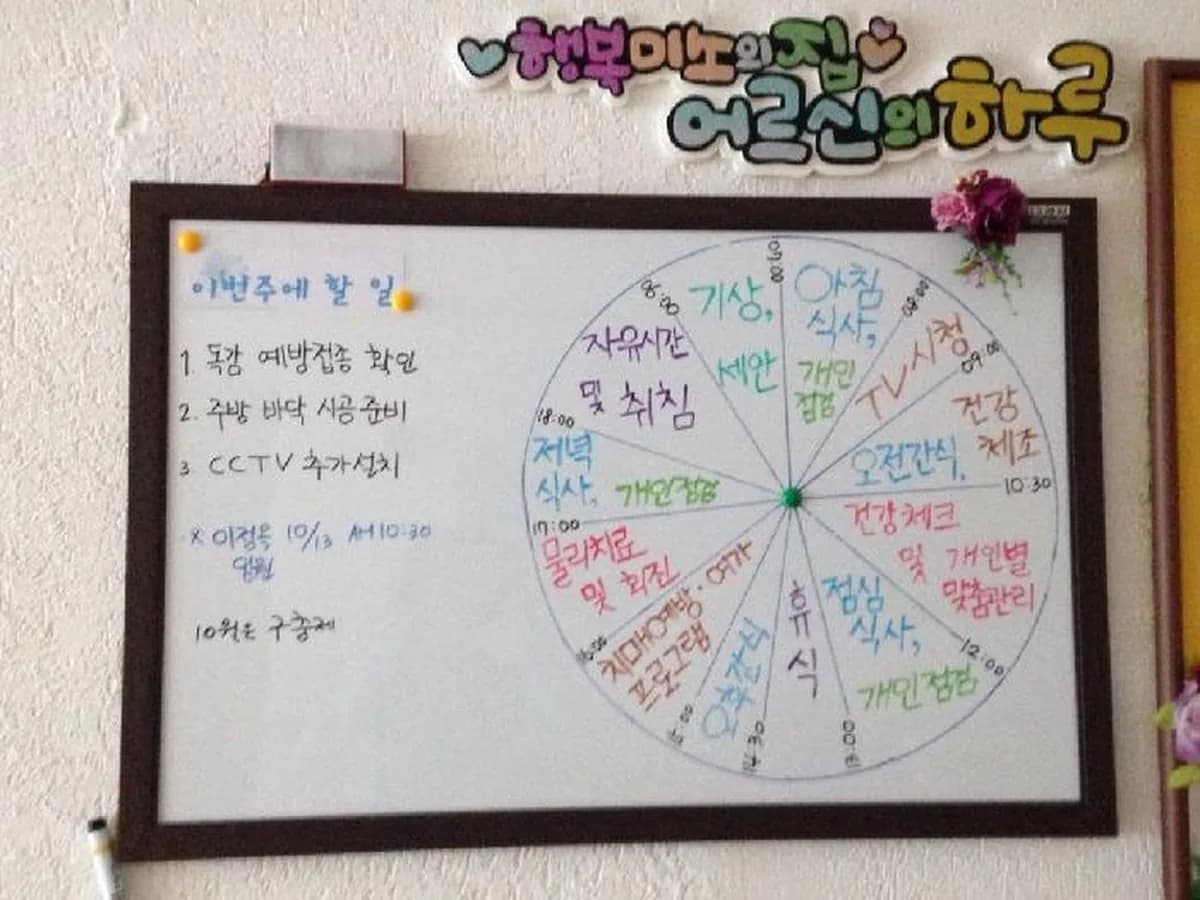 행복미소의집
어르신의하루
이번주에 할 일
1. 독감 예방접종 확인
2. 주방 바닥 시공준비
3 CCTV 추가설치
10/13 AM 10:30
10월은 구충제
기상,
세안
아침
식사,
개인
점검
08:00
TV시청
09:00
건강
체조
오전간식,
10:30
건강체크
및 개인별
맞춤관리
12:00
점심
식사,
개인점검
13:00
휴
식
14:30
오후간식
15:00
치매예방·여가
프로그램
16:00
물리치료
및 회진
17:00
저녁
식사, 개인점검
18:00
자유시간
및 취침